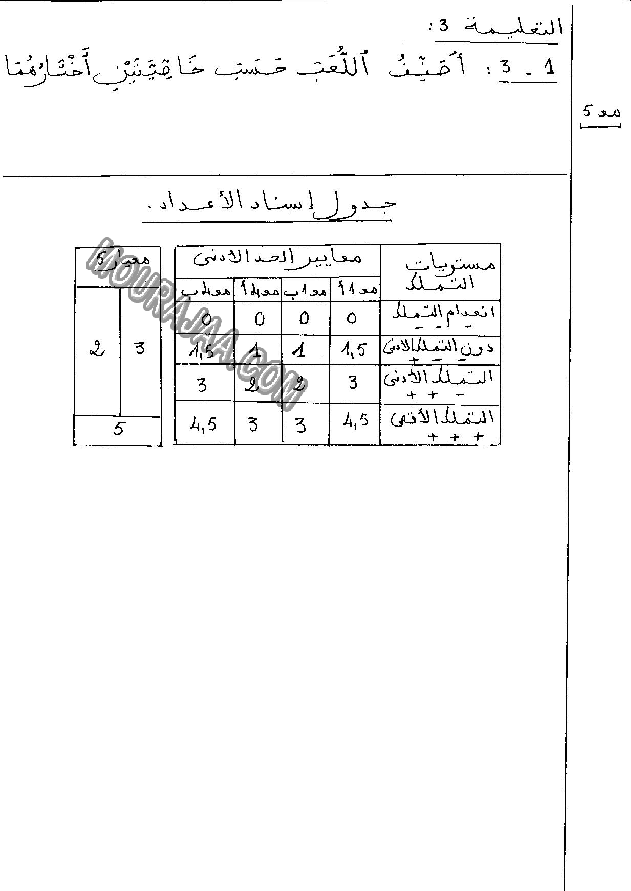 التعليمة 3:
1 - 3: أُصَنِّفُ اللُّعَبَ حَسَبَ خَاصِّيَّتَيْنِ أَخْتَارُهُمَا
مع 5
جدول إسناد الأعداد.
مستويات التملك | معايير الحد الأدنى | معيار 5
مع 1 أ | مع 1 ب | مع 4 أ | مع 4 ب
انعدام التملك - - - | 0 | 0 | 0 | 0
دون التملك الأدنى + - - | 1,5 | 1 | 1 | 1,5 | 3 | 2
التملك الأدنى + + - | 3 | 2 | 2 | 3
التملك الأقصى + + + | 4,5 | 3 | 3 | 4,5 | 5
MOURAJAA.COM